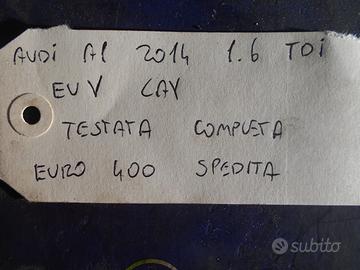 AUDI A1 2014 1.6 TDI
EU V CAY
TESTATA COMPLETA
EURO 400 SPEDITA
subito